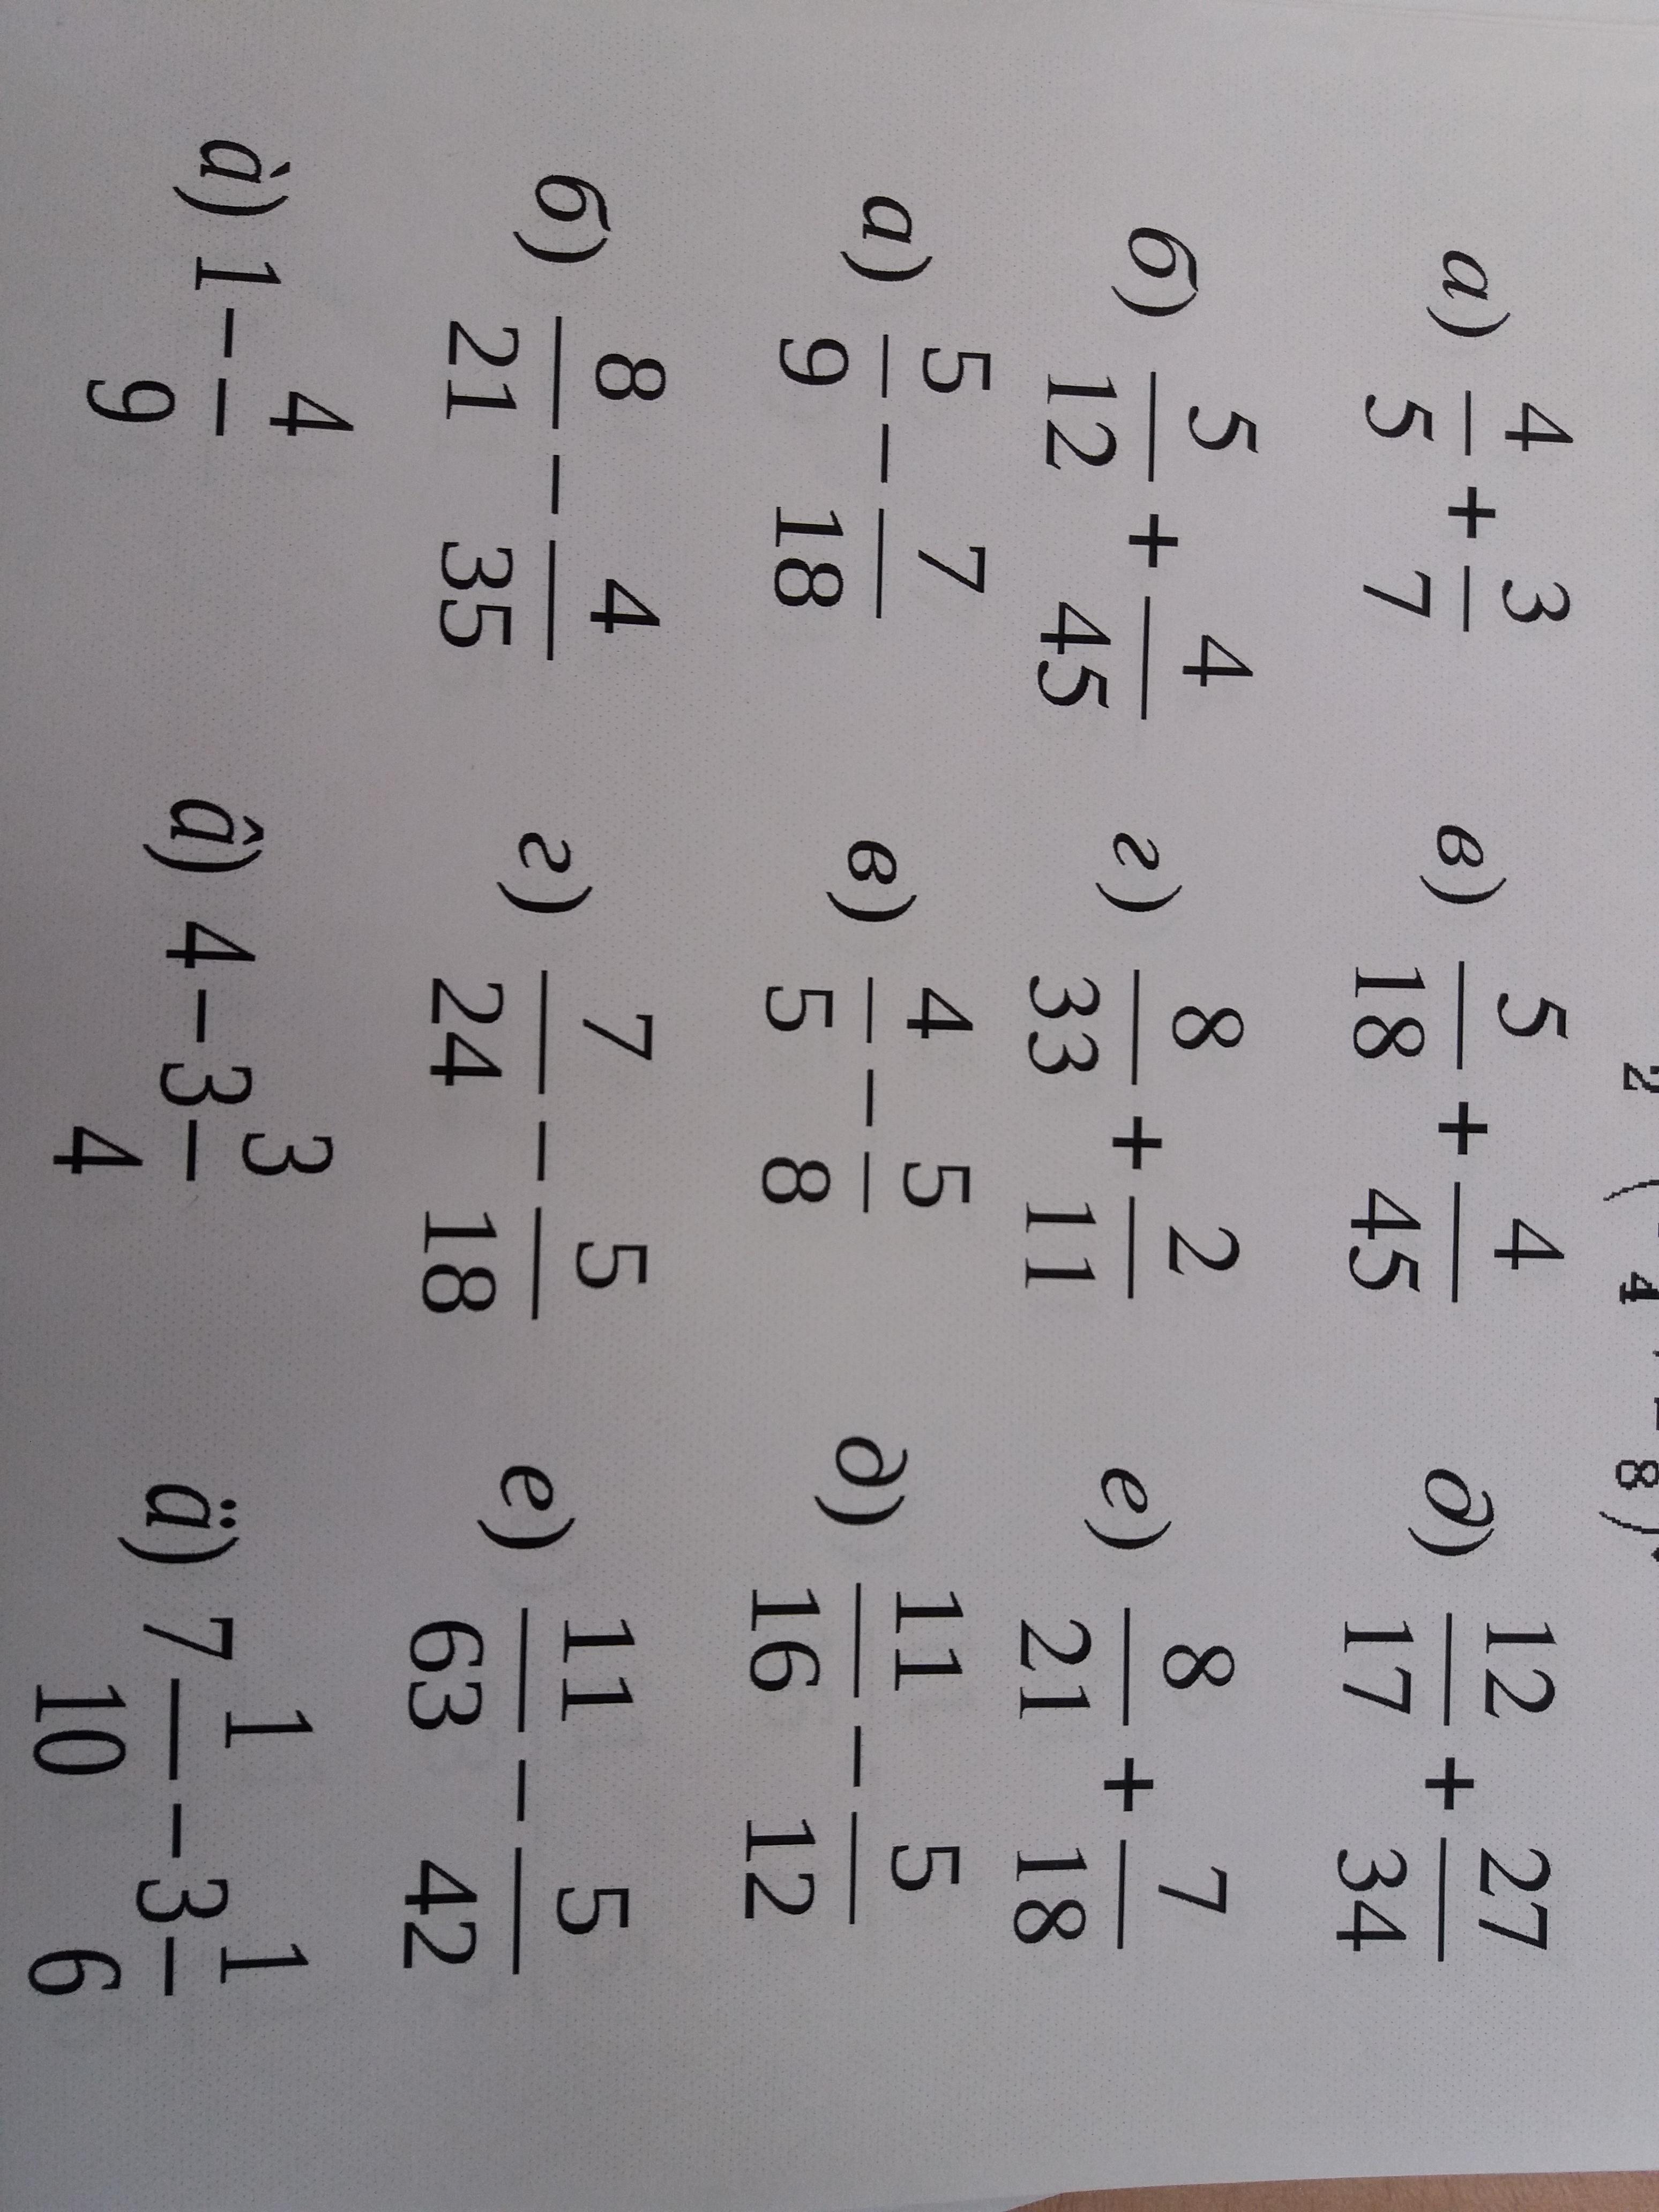 2 ( 4 8 )
а) 4/5 + 3/7 в) 5/18 + 4/45 д) 12/17 + 27/34
б) 5/12 + 4/45 г) 8/33 + 2/11 е) 8/21 + 7/18
а) 5/9 − 7/18 в) 4/5 − 5/8 д) 11/16 − 5/12
б) 8/21 − 4/35 г) 7/24 − 5/18 е) 11/63 − 5/42
à) 1 − 4/9 â) 4 − 3 3/4 ä) 7 1/10 − 3 1/6